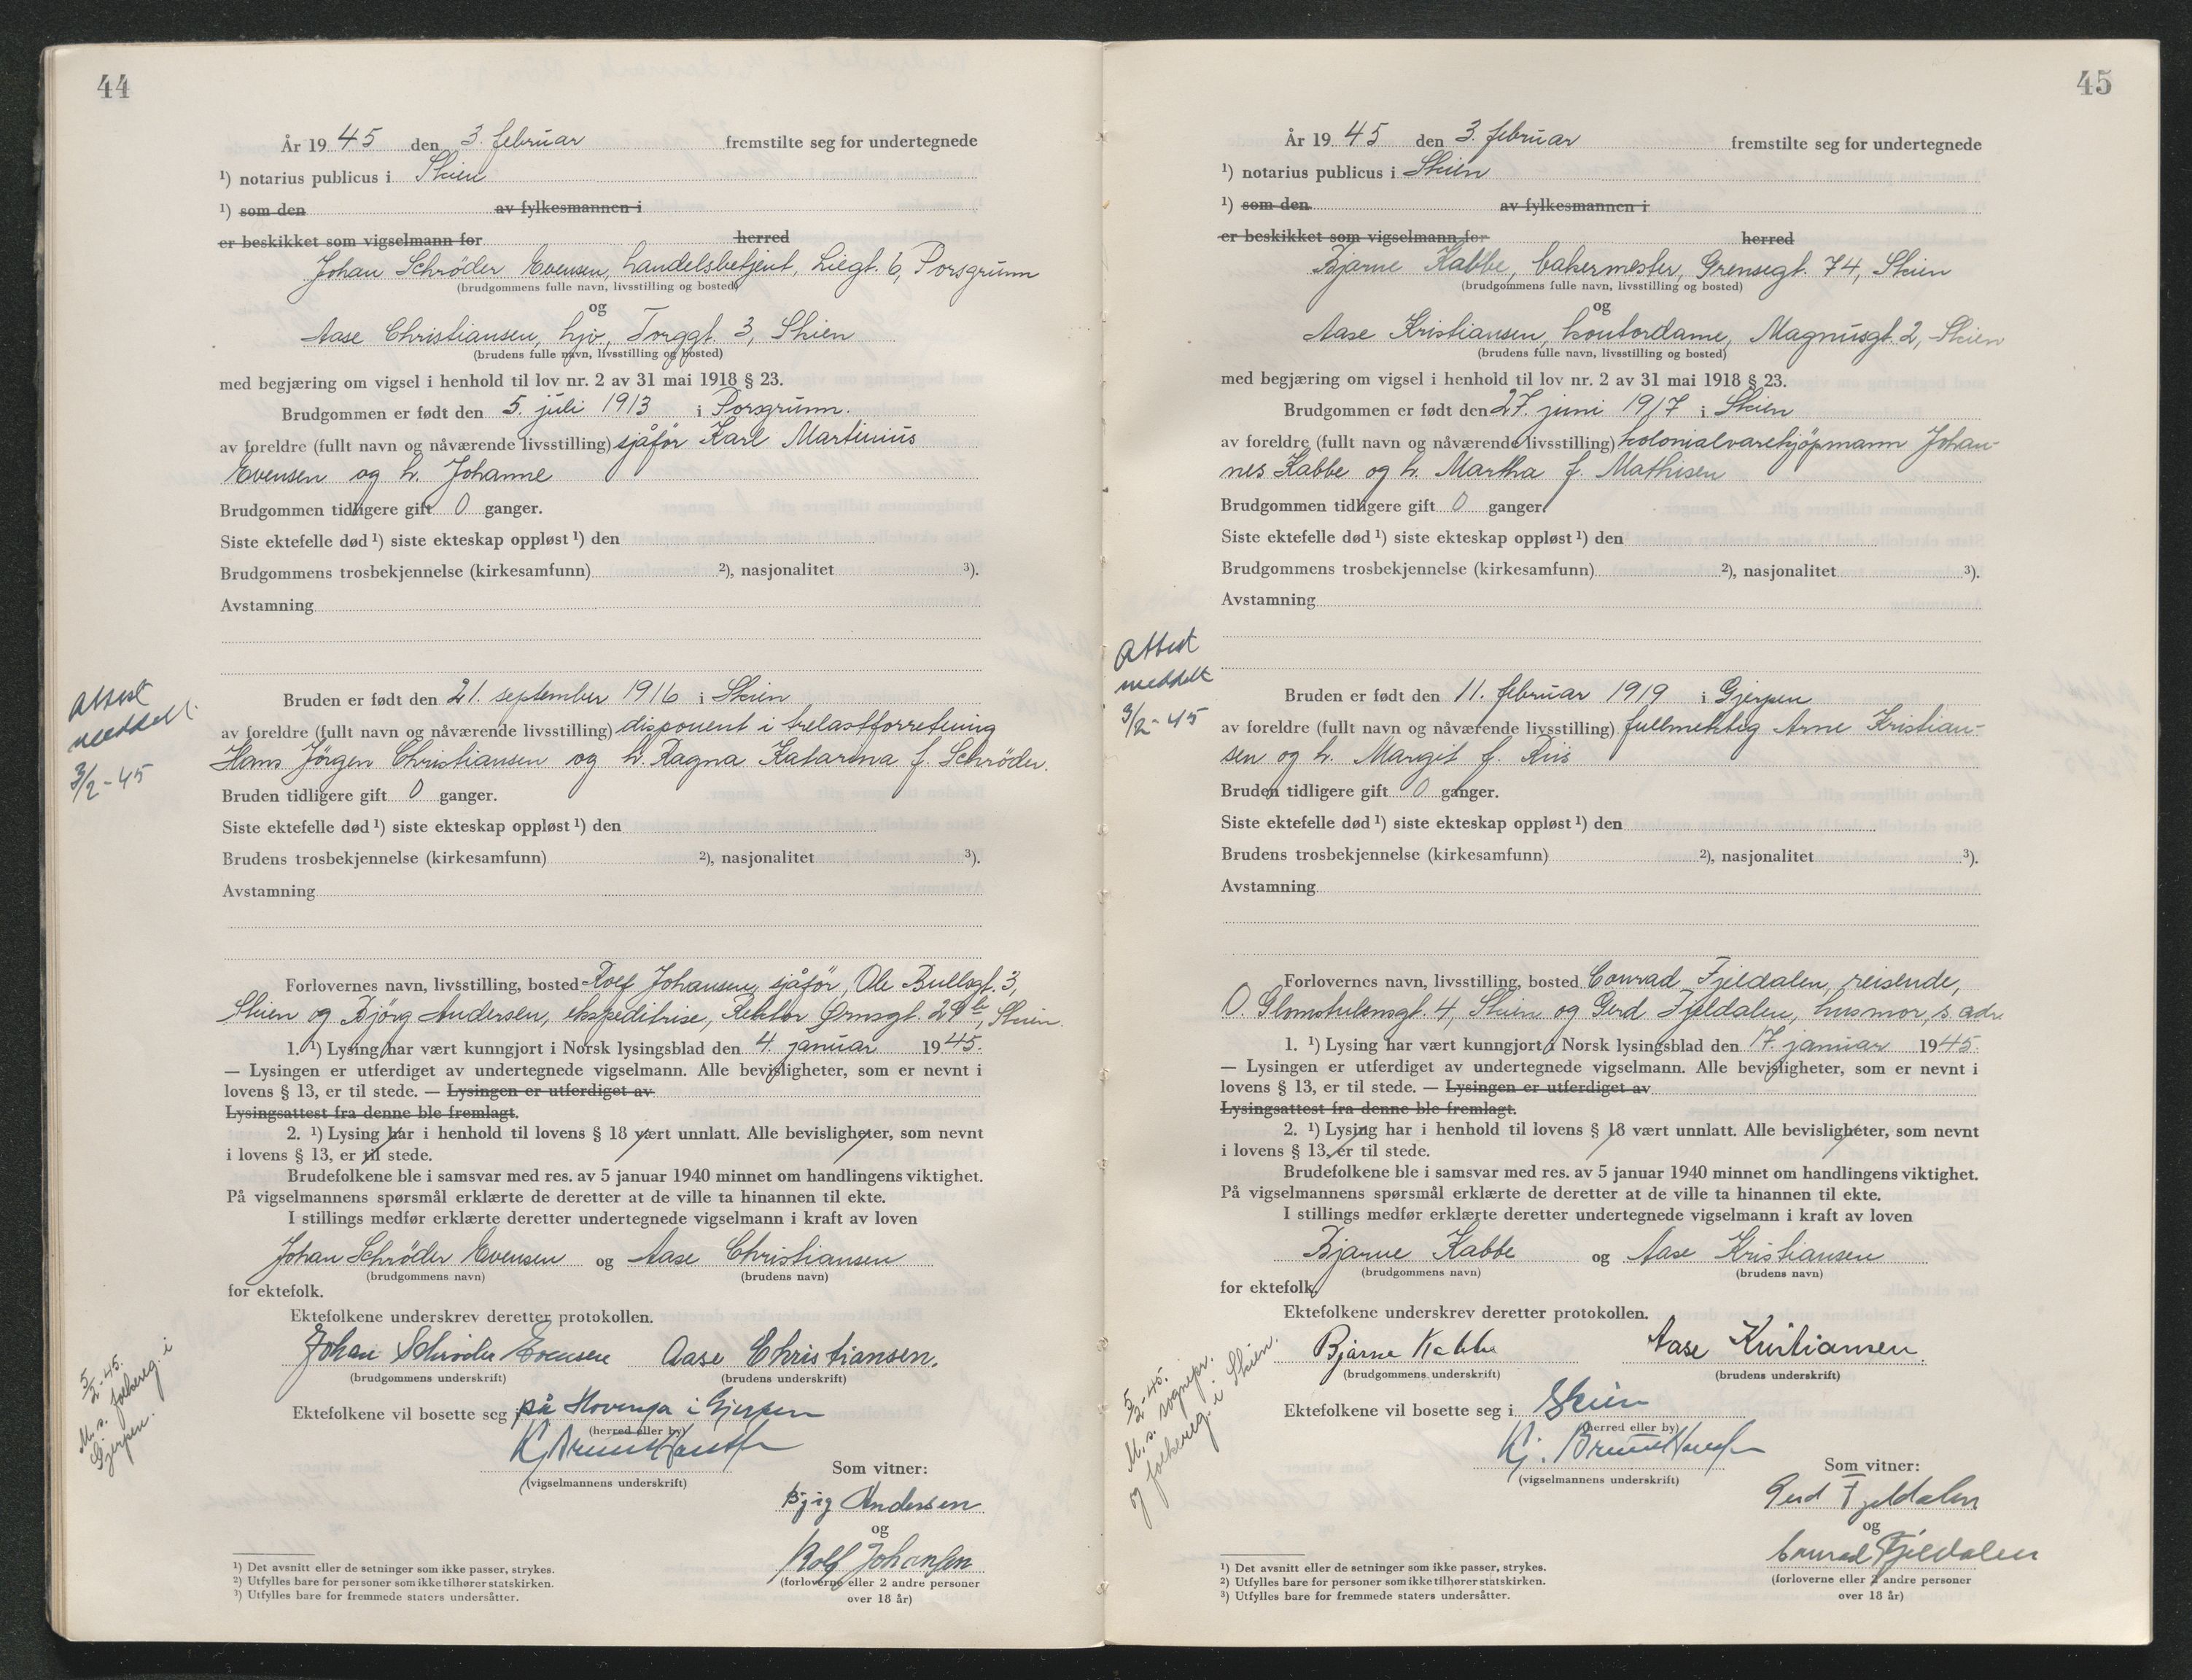 44
År 1945 den 3. februar fremstilte seg for undertegnede
¹) notarius publicus i Skien
¹) som den av fylkesmannen i
er beskikket som vigselmann for herred
Johan Schrøder Evensen, handelsbetjent, Liegt. 6, Porsgrunn
(brudgommens fulle navn, livsstilling og bosted)
og
Aase Christiansen, hjv, Torggt. 3, Skien
(brudens fulle navn, livsstilling og bosted)
med begjæring om vigsel i henhold til lov nr. 2 av 31 mai 1918 § 23.
Brudgommen er født den 5. juli 1913 i Porsgrunn.
av foreldre (fullt navn og nåværende livsstilling) sjåfør Karl Martinius
Evensen og h. Johanne
Brudgommen tidligere gift 0 ganger.
Siste ektefelle død ¹) siste ekteskap oppløst ¹) den
Brudgommens trosbekjennelse (kirkesamfunn) ²), nasjonalitet ³).
Avstamning
Attest
meddelt
3/2-45
Bruden er født den 21. september 1916 i Skien
av foreldre (fullt navn og nåværende livsstilling) disponent i trelastforretning
Hans Jörgen Christiansen og h. Ragna Katarina f. Schröder.
Bruden tidligere gift 0 ganger.
Siste ektefelle død ¹) siste ekteskap oppløst ¹) den
Brudens trosbekjennelse (kirkesamfunn) ²), nasjonalitet ³).
Avstamning
Forlovernes navn, livsstilling, bosted Rolf Johansen, sjåför, Ole Bullsgt. 3,
Skien og Björg Andersen, ekspeditrise, Rektor Ørnsgt. Skien.
1. ¹) Lysing har vært kunngjort i Norsk lysingsblad den 4. januar 1945.
— Lysingen er utferdiget av undertegnede vigselmann. Alle bevisligheter, som er nevnt i
lovens § 13, er til stede. — Lysingen er utferdiget av
Lysingsattest fra denne ble fremlagt.
2. ¹) Lysing har i henhold til lovens § 18 vært unnlatt. Alle bevisligheter, som nevnt
i lovens § 13, er til stede.
Brudefolkene ble i samsvar med res. av 5 januar 1940 minnet om handlingens viktighet.
På vigselmannens spørsmål erklærte de deretter at de ville ta hinannen til ekte.
I stillings medfør erklærte deretter undertegnede vigselmann i kraft av loven
Johan Schröder Evensen og Aase Christiansen
(brudgommens navn) (brudens navn)
for ektefolk.
Ektefolkene underskrev deretter protokollen.
Johan Schrøder Evensen Aase Christiansen.
(brudgommens underskrift) (brudens underskrift)
5/2-45.
M. s. folkereg. i
Gjerpen.
Ektefolkene vil bosette seg i på Hovenga i Gjerpen
(herred eller by)
(vigselmannens underskrift)
Som vitner:
Björg Andersen
og
Rolf Johansen
(forloverne eller 2 andre personer
over 18 år)
¹) Det avsnitt eller de setninger som ikke passer, strykes.
²) Utfylles bare for personer som ikke tilhører statskirken.
³) Utfylles bare for fremmede staters undersåtter.
45
År 1945 den 3. februar fremstilte seg for undertegnede
¹) notarius publicus i Skien
¹) som den av fylkesmannen i
er beskikket som vigselmann for herred
Bjarne Kabbe, bakermester, Grensegt. 74, Skien
(brudgommens fulle navn, livsstilling og bosted)
og
Aase Kristiansen, kontordame, Magnusgt. 2, Skien
(brudens fulle navn, livsstilling og bosted)
med begjæring om vigsel i henhold til lov nr. 2 av 31 mai 1918 § 23.
Brudgommen er født den 27. juni 1917 i Skien
av foreldre (fullt navn og nåværende livsstilling) kolonialvarekjöpmann Johan-
nes Kabbe og h. Martha f. Mathisen
Brudgommen tidligere gift 0 ganger.
Siste ektefelle død ¹) siste ekteskap oppløst ¹) den
Brudgommens trosbekjennelse (kirkesamfunn) ²), nasjonalitet ³).
Avstamning
Attest
meddelt
3/2-45
Bruden er født den 11. februar 1919 i Gjerpen
av foreldre (fullt navn og nåværende livsstilling) fullmektig Arne Kristian-
sen og h. Margit f. Riis
Bruden tidligere gift 0 ganger.
Siste ektefelle død ¹) siste ekteskap oppløst ¹) den
Brudens trosbekjennelse (kirkesamfunn) ²), nasjonalitet ³).
Avstamning
Forlovernes navn, livsstilling, bosted Conrad Fjeldalen, reisende,
O. Glomstulensgt. 4, Skien og Gerd Fjeldalen, husmor, s. adr.
1. ¹) Lysing har vært kunngjort i Norsk lysingsblad den 17. januar 1945.
— Lysingen er utferdiget av undertegnede vigselmann. Alle bevisligheter, som er nevnt i
lovens § 13, er til stede. — Lysingen er utferdiget av
Lysingsattest fra denne ble fremlagt.
2. ¹) Lysing har i henhold til lovens § 18 vært unnlatt. Alle bevisligheter, som nevnt
i lovens § 13, er til stede.
Brudefolkene ble i samsvar med res. av 5 januar 1940 minnet om handlingens viktighet.
På vigselmannens spørsmål erklærte de deretter at de ville ta hinannen til ekte.
I stillings medfør erklærte deretter undertegnede vigselmann i kraft av loven
Bjarne Kabbe og Aase Kristiansen
(brudgommens navn) (brudens navn)
for ektefolk.
Ektefolkene underskrev deretter protokollen.
Bjarne Kabbe Aase Kristiansen.
(brudgommens underskrift) (brudens underskrift)
5/2-45.
M. s. sognepr.
og folkereg. i Skien.
Ektefolkene vil bosette seg i Skien
(herred eller by)
(vigselmannens underskrift)
Som vitner:
Gerd Fjeldalen
og
Conrad Fjeldalen
(forloverne eller 2 andre personer
over 18 år)
¹) Det avsnitt eller de setninger som ikke passer, strykes.
²) Utfylles bare for personer som ikke tilhører statskirken.
³) Utfylles bare for fremmede staters undersåtter.